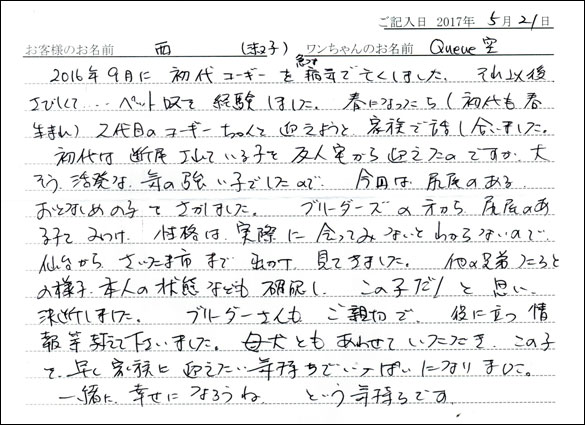 ご記入日 2017年 5月 21日
お客様のお名前 西 (ま子) ワンちゃんのお名前 Queue 空
2016年9月に 初代コーギーを 急きょ 病気で亡くしました. それ以後
さびしくて… ペットロスを 経験しました. 春になったら(初代も春
生まれ) 2代目のコーギーちゃんを 迎えようと 家族で話し合いました。
初代は 断尾されている子を 友人宅から迎えたのですが, 大
そう, 活発な, 気の強い子でしたので, 今回は 尻尾のある,
おとなしめの子をさがしました. ブリーダーズの方から 尻尾のあ
る子をみつけ, 性格は, 実際に会ってみないとわからないので,
仙台から さいたま市まで 出かけ, 見てきました. 他の兄弟 ころと
の様子, 本人の状態なども確認し, この子だ! と 思い,
決断しました. ブリーダーさんも ご親切で, 役に立つ情
報等教えて下さいました. 母犬ともあわせていただき, この子
を, 早く家族に迎えたい気持ちでいっぱいになりました.
一緒に, 幸せになろうね, という気持ちです.